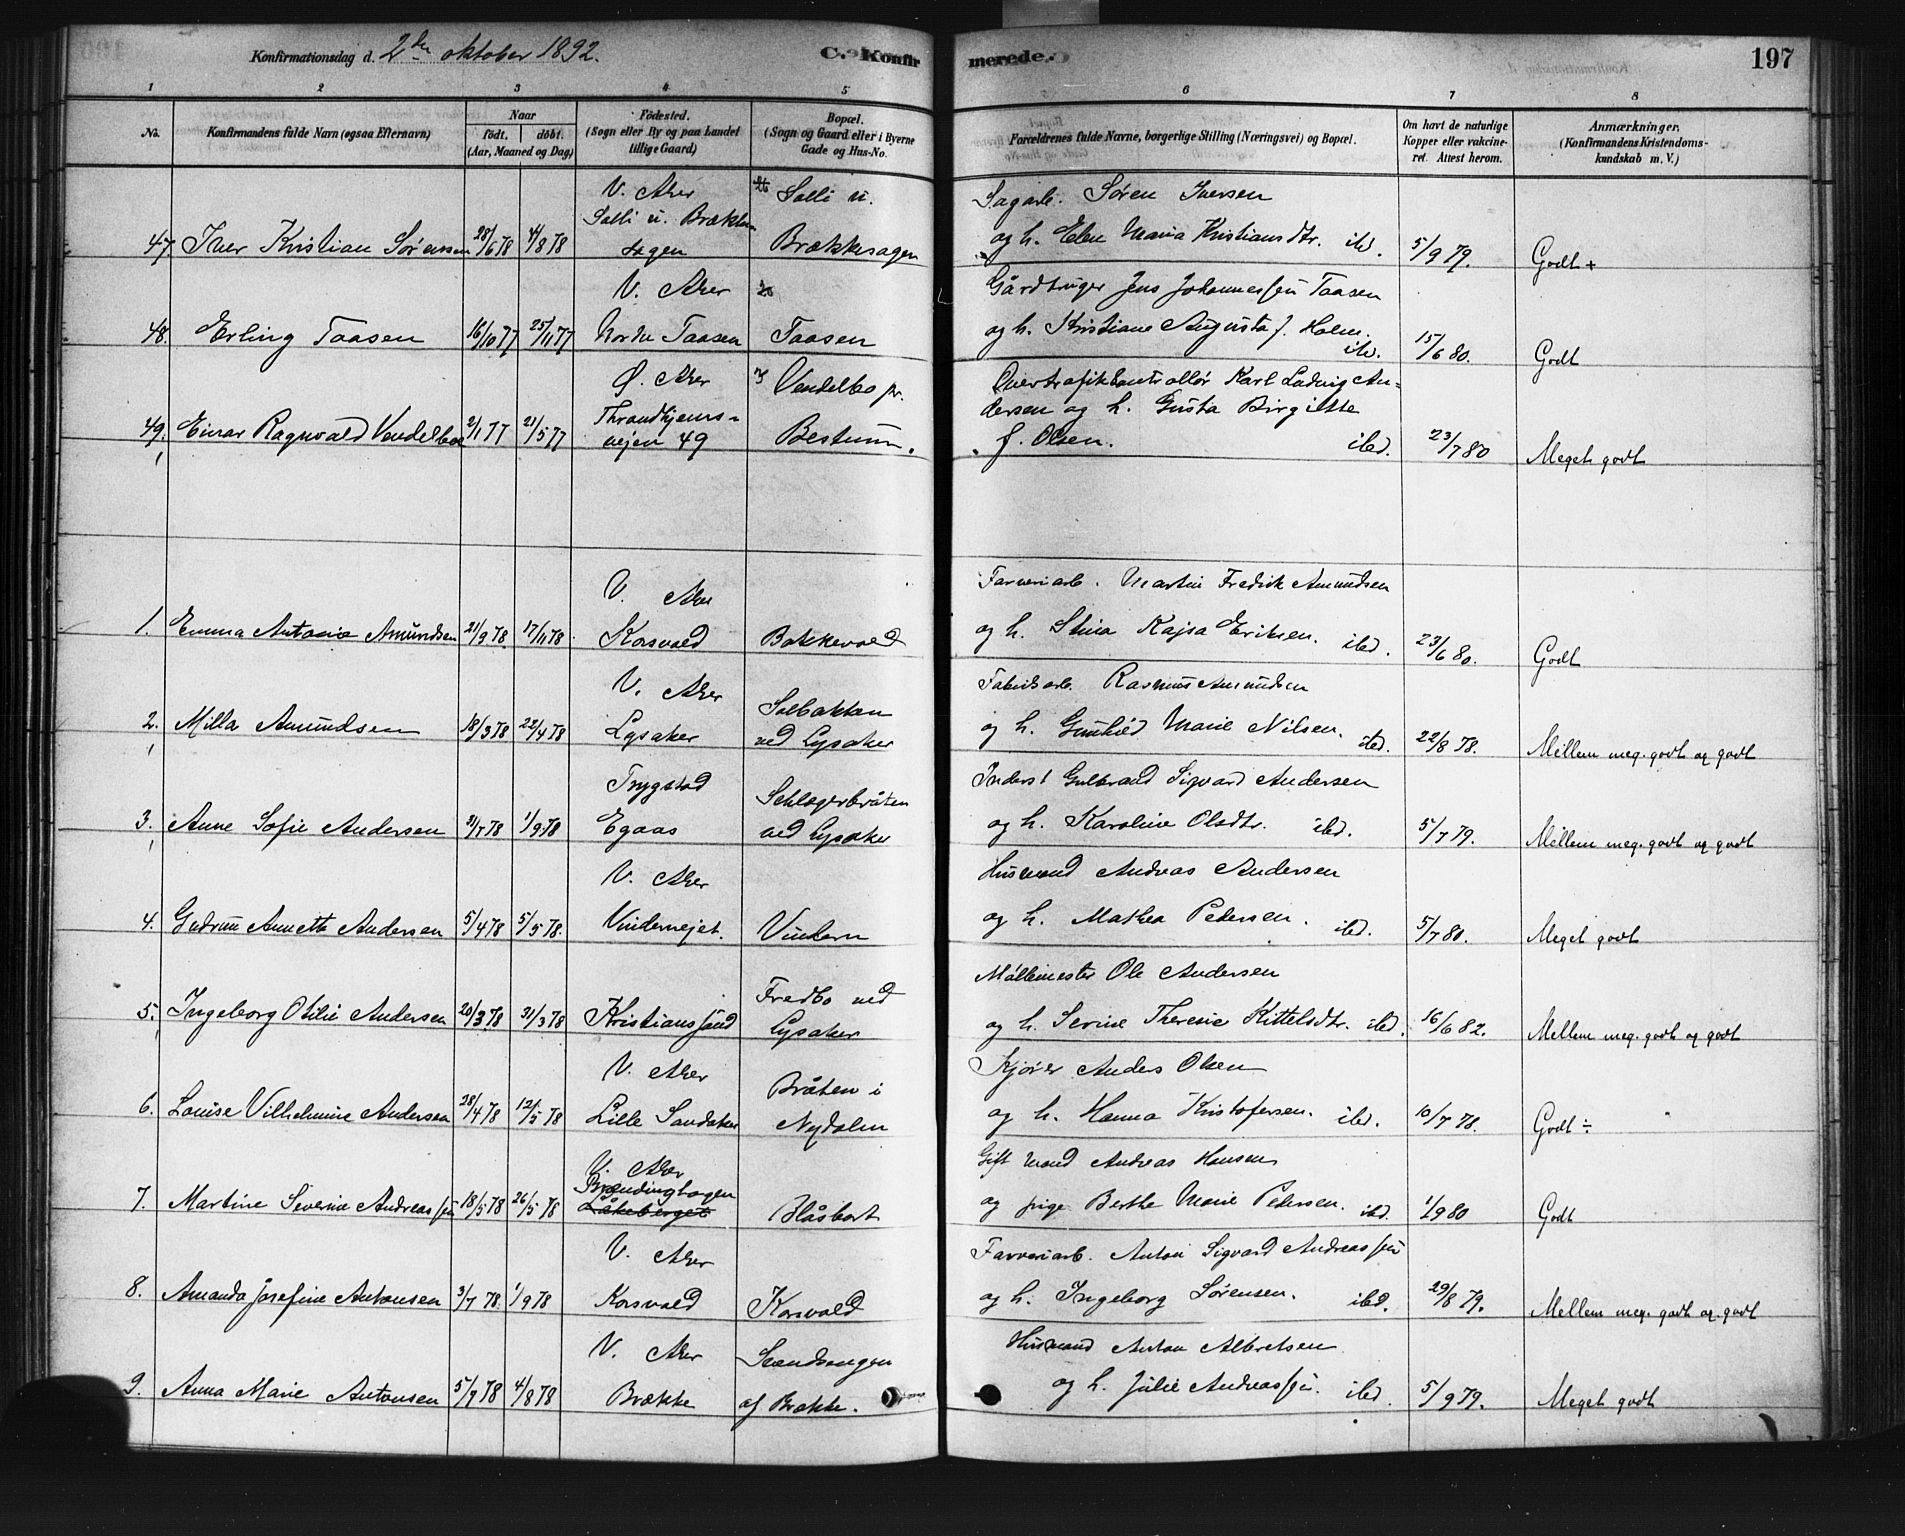 Konfirmationsdag d. 2den oktober 1892.
C. Konfirmerede.
197
1 2 3 4 5 6 7 8
No.
Konfirmandens fulde Navn (ogsaa Efternavn)
Naar
födt. döbt.
(Aar, Maaned og Dag)
Födested.
(Sogn eller By og paa Landet
tillige Gaard)
Bopæl.
(Sogn og Gaard eller i Byerne
Gade og Hus-No.
Forældrenes fulde Navne, borgerlige Stilling (Næringsvei) og Bopæl.
Om havt de naturlige
Kopper eller vakcine-
ret. Attest herom.
Anmærkninger.
(Konfirmandens Kristendoms-
kundskab m. V.)
V. Aker Solli u. Sagarb. Søren Iversen
Solli u. Brække
47. Iver Kristian Sørensen 28/6 78 4/8 78 sagen Brækkesagen og h. Elen Maria Kristiansdtr. ibd. 5/9 79. Godt +
V. Aker Gårdbruger Jens Johannessen Taasen
48. Erling Taasen 16/10 77 25/11 77 Nordre Taasen Taasen og h. Kristiane Augusta f. Holm. ibd. 15/6 80. Godt
Ø. Aker Vendelbo pr. Overtrafikkontrollør Karl Ludvig An-
Throndhjems- dersen og h. Gusta Birgitte
49. Einar Ragnvald Vendelboe 2/1 77 21/5 77 vejen 49 Bestum. f. Olsen. ibd. 23/7 80 Meget godt
V. Aker Farveriarb. Martin Fredrik Amundsen
1. Emma Antonie Amundsen 21/9 78. 17/11 78. Korsvold Bakkevold og h. Stina Kajsa Eriksen. ibd. 23/6 80. Godt
V. Aker Solbakken Fabrikarb. Rasmus Amundsen
2. Milla Amundsen 18/3 78 22/4 78 Lysaker ved Lysaker og h. Gunhild Marie Nilsen. ibd. 22/8 78. Mellem meg. godt og godt
Trygstad Inderst Gulbrand Sigvard Andersen
3. Anne Sofie Andersen 31/7 78 1/9 78 Egaas ved Lysaker og h. Karoline Olsdtr. ibd. 5/7 79. Mellem meg. godt og godt
V. Aker Husmand Andreas Andersen
4. Gudrun Annette Andersen 5/4 78 5/5 78. Vindernejet. Vindern og h. Mathea Pedersen. ibd. 5/7 80. Meget godt
Fredbo ved Møllemester Ole Andersen
5. Ingeborg Otilie Andersen 20/3 78 31/3 78 Kristianssand Lysaker og h. Serine Theresie Kittelsdtr. ibd. 16/6 82. Mellem meg. godt og godt
V. Aker Bråten i Kjører Anders Olsen
6. Louise Vilhelmine Andersen 28/4 78 12/5 78 Lille Sandaker Nydalen og h. Hanna Kristofersen. ibd. 10/7 78. Godt ÷
V. Aker Gift mand Andreas Hansen
7. Martine Severine Andreassen 18/5 78 26/5 78 Blåsbort og pige Berthe Marie Pedersen. ibd. 1/9 80 Godt
V. Aker Farveriarb. Anton Sigvard Andreassen
8. Amanda Josefine Antonsen 3/7 78. 1/9 78 Korsvold Korsvold og h. Ingeborg Sørensen. ibd. 29/8 79. Mellem meg. godt og godt
V. Aker Husmand Anton Albretsen
9. Anna Marie Antonsen 5/7 78 4/8 78 Brække af Brække. og h. Julie Andreassen. ibd. 5/9 79. Meget godt